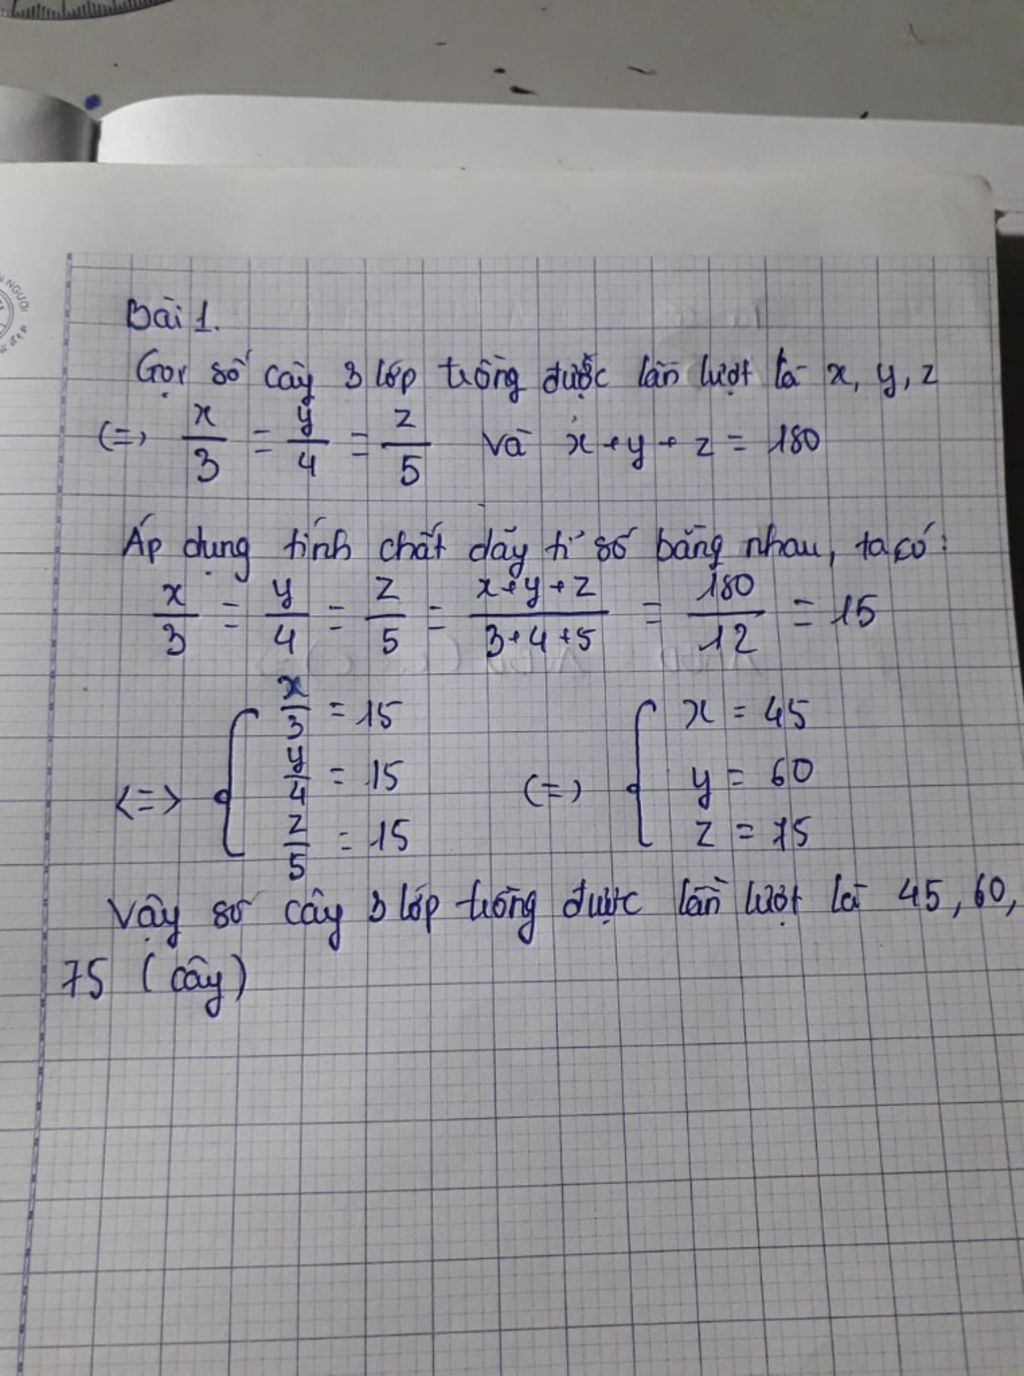 NGƯỜI
Bài 1.
Gọi số cây 3 lớp trồng được lần lượt là x, y, z
(=) x/3 = y/4 = z/5 và x + y + z = 180
Áp dụng tính chất dãy tỉ số bằng nhau, ta có:
x/3 = y/4 = z/5 = x+y+z/3+4+5 = 180/12 = 15
<=> { x/3 = 15 (=) { x = 45
y/4 = 15 y = 60
z/5 = 15 z = 75
Vậy số cây 3 lớp trồng được lần lượt là 45, 60,
75 (cây)